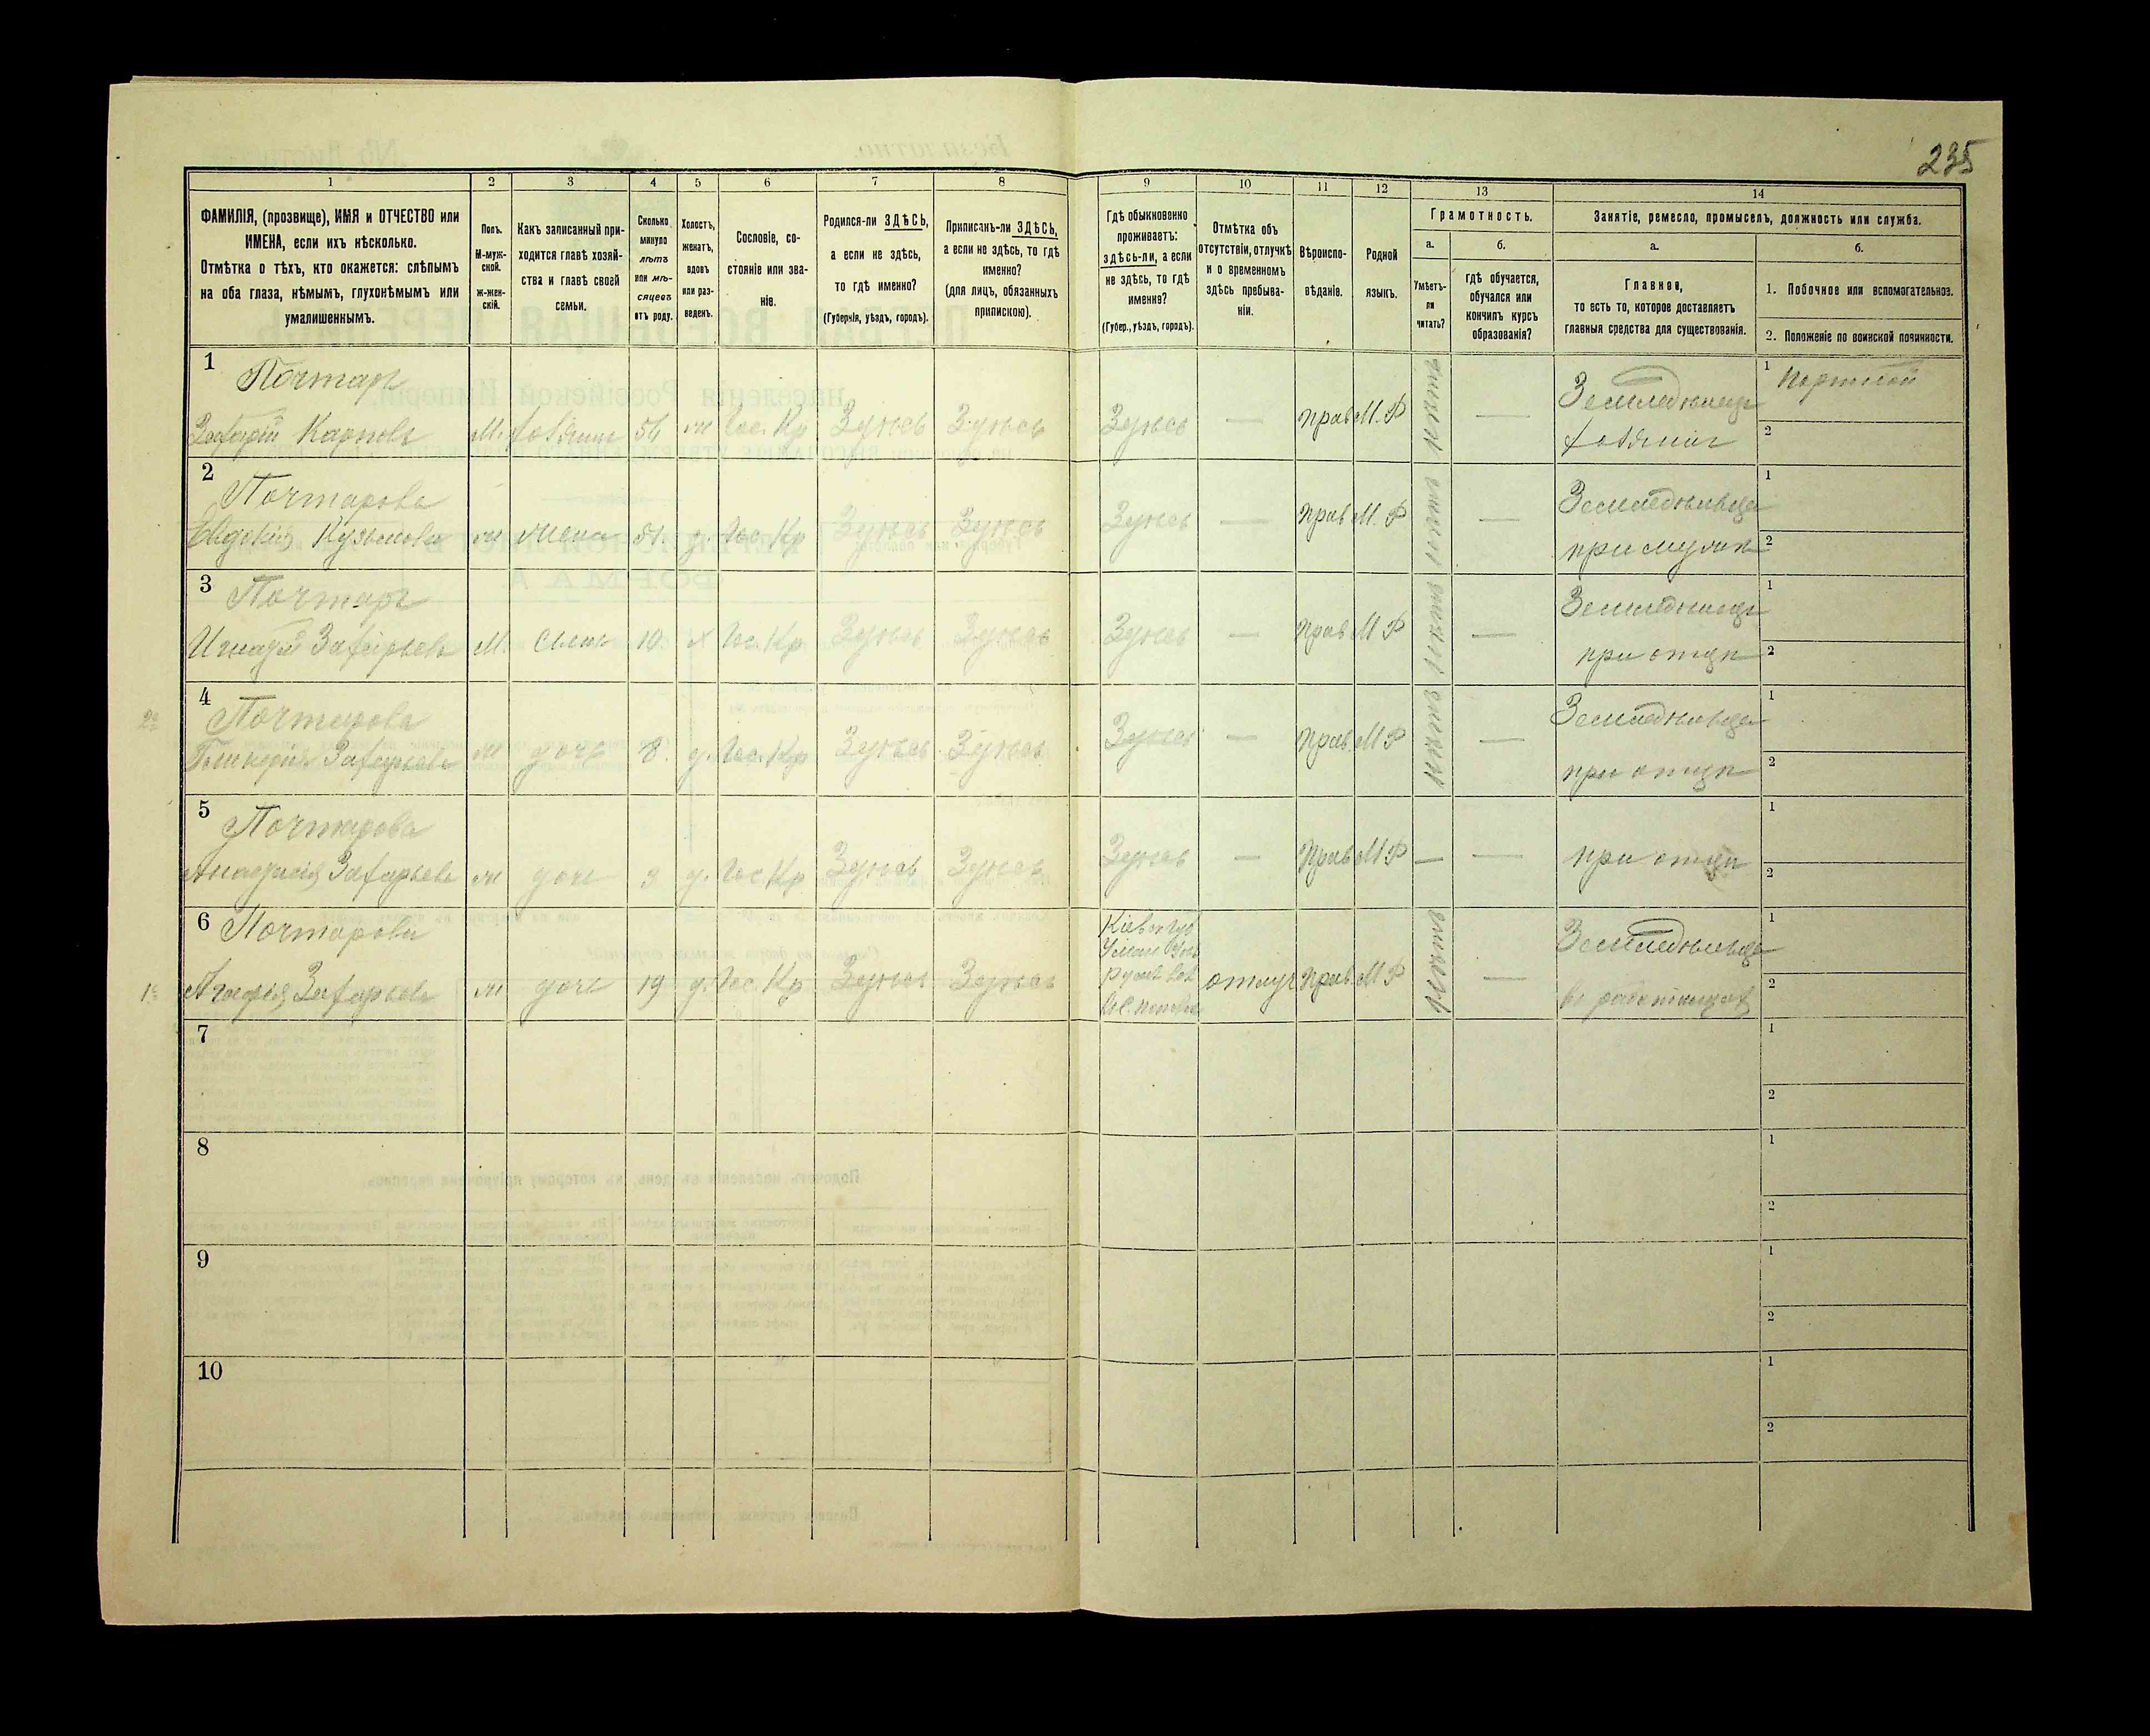 235
1
2
3
4
5
6
7
8
9
10
11
12
13
14
ФАМИЛІЯ, (прозвище), ИМЯ и ОТЧЕСТВО или
ИМЕНА, если ихъ нѣсколько.
Отмѣтка о тѣхъ, кто окажется: слѣпымъ
на оба глаза, нѣмымъ, глухонѣмымъ или
умалишеннымъ.
Полъ.
М-муж-
ской.
ж-жен-
скій.
Какъ записанный при-
ходится главѣ хозяй-
ства и главѣ своей
семьи.
Сколько
минуло
лѣтъ
или мѣ-
сяцевъ
отъ роду.
Холостъ,
женатъ,
вдовъ
или раз-
веденъ.
Сословіе, со-
стояніе или зва-
ніе.
Родился-ли ЗДѢСЬ,
а если не здѣсь,
то гдѣ именно?
(Губернія, уѣздъ, городъ).
Приписанъ-ли ЗДѢСЬ,
а если не здѣсь, то гдѣ
именно?
(для лицъ, обязанныхъ
припискою).
Гдѣ обыкновенно
проживаетъ:
здѣсь-ли, а если
не здѣсь, то гдѣ
именно?
(Губер., уѣздъ, городъ).
Отмѣтка объ
отсутствіи, отлучкѣ
и о временномъ
здѣсь пребыва-
ніи.
Вѣроиспо-
вѣданіе.
Родной
языкъ.
Грамотность.
а.
б.
Умѣетъ-
ли
читать?
гдѣ обучается,
обучался или
кончилъ курсъ
образованія?
Занятіе, ремесло, промыселъ, должность или служба.
а.
б.
Главное,
то есть то, которое доставляетъ
главныя средства для существованія.
1. Побочное или вспомогательное.
2. Положеніе по воинской повинности.
1
Почтарь
Захарій Карповъ М. хозяинъ 54 ж Гос. Кр Здѣсь Здѣсь Здѣсь — Прав М.Р нѣтъ — Земледѣлецъ хозяинъ
1 Портной
2
2
Почтарова
Евдокія Кузьмова ж жена 51. з. Гос. Кр Здѣсь Здѣсь Здѣсь — Прав М.Р нѣтъ — Земледѣльца при мужѣ
1
2
3
Почтарь
Игнатій Захарьевъ М. сынъ 10 х Гос. Кр Здѣсь Здѣсь Здѣсь — Прав М Р нѣтъ — Земледѣлецъ при отцѣ
1
2
4
Почтарова
Захарьева ж дочь 8. д. Гос. Кр Здѣсь Здѣсь Здѣсь — Прав М Р нѣтъ — Земледѣльца при отцѣ
1
2
5
Почтарова
Анастасія Захарьева ж дочь 3 д. Гос. Кр Здѣсь Здѣсь Здѣсь — Прав М Р — — при отцѣ
1
2
6 Почтарова
Агафія Захарьева ж дочь 19 д. Гос. Кр Здѣсь Здѣсь Кіевск Губ Уман отлуч Прав М Р нѣтъ — Земледѣльца въ работницах
1
2
7
1
2
8
1
2
9
1
2
10
1
2